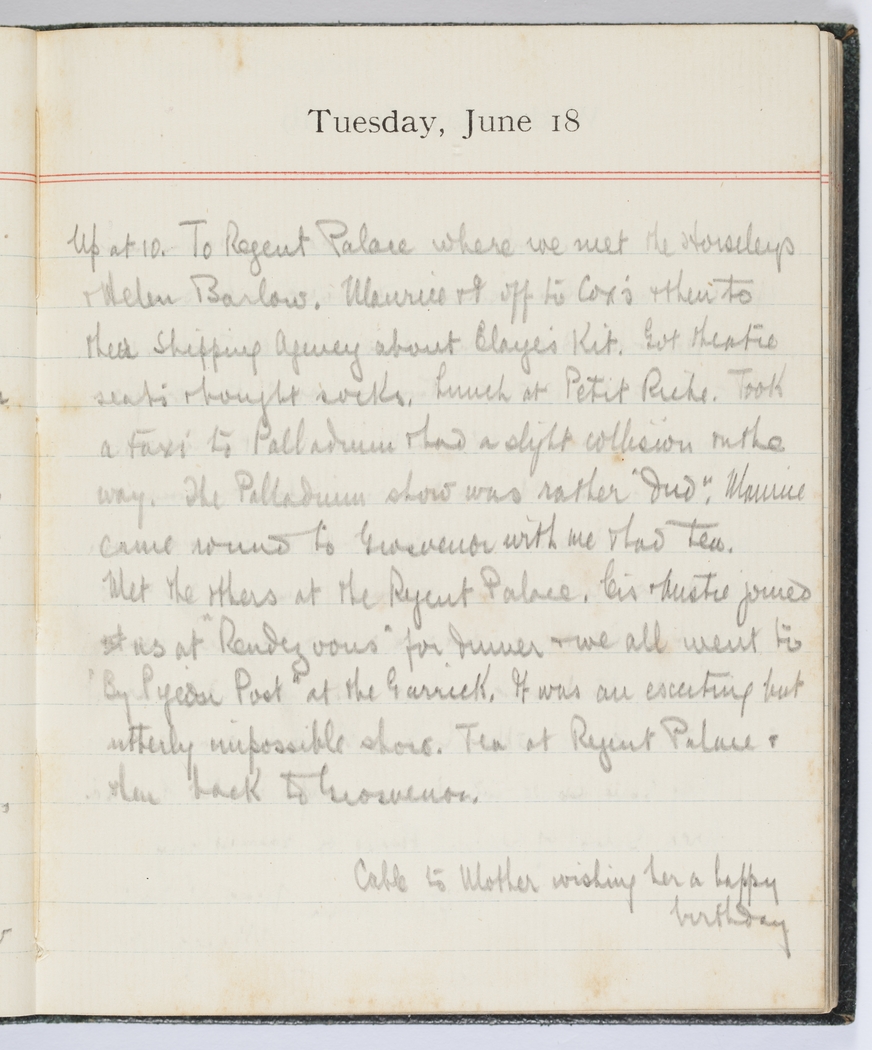 Tuesday, June 18
Up at 10. To Regent Palace where we met the Horseleys
& Helen Barlow. Maurice & I off to Cox's & then to
the Shipping Agency about Claye's Kit. Got theatre
seats & bought socks. Lunch at Petit Riche. Took
a Taxi to Palladium & had a slight collision on the
way. The Palladium show was rather "dud". Maurice
came round to Grosvenor with me & had tea.
Met the others at the Regent Palace. Cis & joined
us at "Rendezvous" for dinner & we all went to
"By Pigeon Post" at the Garrick. It was an exciting but
utterly impossible show. Tea at Regent Palace &
then back to Grosvenor.
Cable to Mother wishing her a happy
birthday